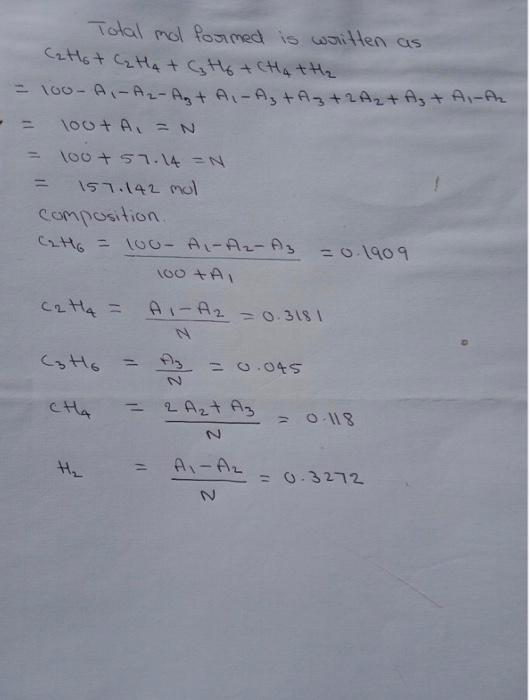 Total mol formed is written as
C2H6 + C2H4 + C3H6 + CH4 + H2
= 100 - A1 - A2 - A3 + A1 - A3 + A3 + 2A2 + A3 + A1 - A2
= 100 + A1 = N
= 100 + 57.14 = N
= 157.142 mol
composition.
C2H6 = 100 - A1 - A2 - A3 / 100 + A1 = 0.1909
C2H4 = A1 - A2 / N = 0.3181
C3H6 = A3 / N = 0.045
CH4 = 2A2 + A3 / N = 0.118
H2 = A1 - A2 / N = 0.3272